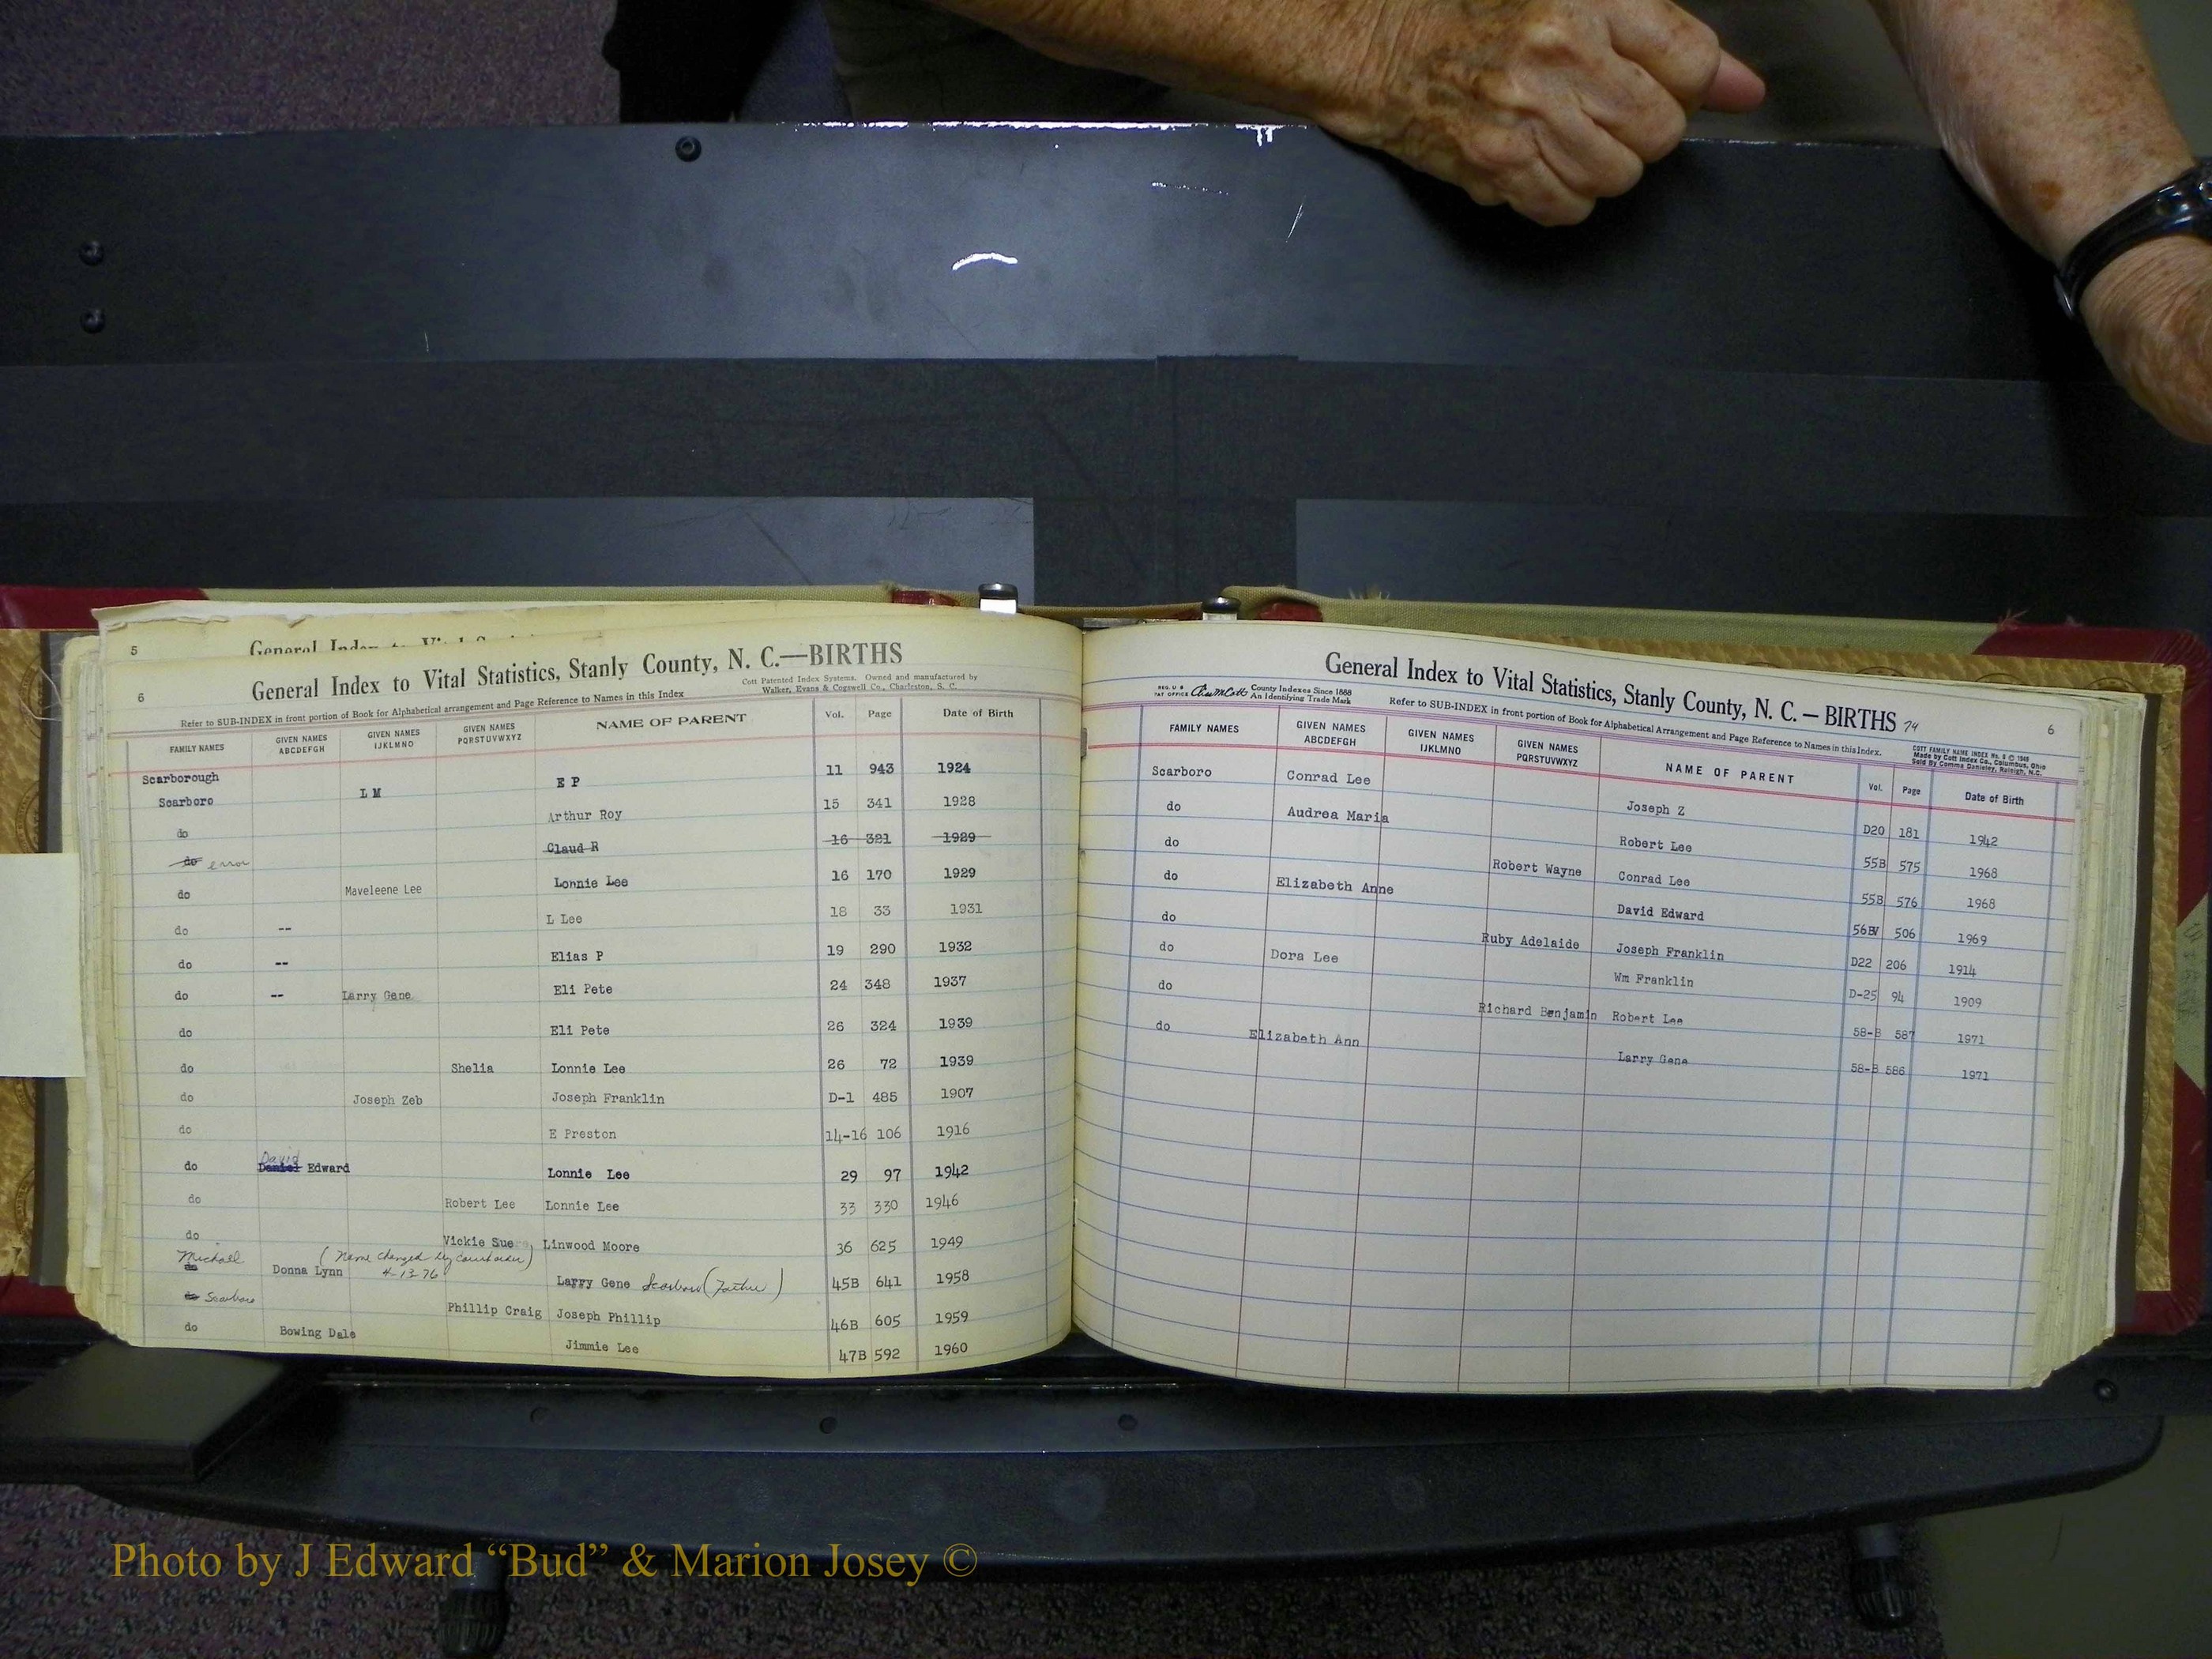 5 General Index to Vital Statistics
6 General Index to Vital Statistics, Stanly County, N. C.—BIRTHS
Refer to SUB-INDEX in front portion of Book for Alphabetical arrangement and Page Reference to Names in this Index
Cott Patented Index Systems. Owned and manufactured by
Walker, Evans & Cogswell Co., Charleston, S. C.
FAMILY NAMES GIVEN NAMES ABCDEFGH GIVEN NAMES IJKLMNO GIVEN NAMES PQRSTUVWXYZ NAME OF PARENT Vol. Page Date of Birth
Scarborough L M E P 11 943 1924
Scarboro Arthur Roy 15 341 1928
do Claud R 16 321 1929
do error Lonnie Lee 16 170 1929
do Maveleene Lee L Lee 18 33 1931
do -- Elias P 19 290 1932
do -- Eli Pete 24 348 1937
do -- Larry Gene Eli Pete 26 324 1939
do Lonnie Lee 26 72 1939
do Shelia Joseph Franklin D-1 485 1907
do Joseph Zeb E Preston 14-16 106 1916
do
do David Daniel Edward Lonnie Lee 29 97 1942
do Robert Lee Lonnie Lee 33 330 1946
do Vickie Sue Linwood Moore 36 625 1949
Michael do Donna Lynn (Name changed by Court order) 4-13-76 Larry Gene Scarboro (Father) 45B 641 1958
do Scarboro Phillip Craig Joseph Phillip 46B 605 1959
do Bowing Dale Jimmie Lee 47B 592 1960
General Index to Vital Statistics, Stanly County, N. C. — BIRTHS 74 6
REG. U S PAT OFFICE County Indexes Since 1888
An Identifying Trade Mark
Refer to SUB-INDEX in front portion of Book for Alphabetical Arrangement and Page Reference to Names in this Index.
COTT FAMILY NAME INDEX No. 6 © 1949
Made by Cott Index Co., Columbus, Ohio
Sold By Comma Danieley, Raleigh, N.C.
FAMILY NAMES GIVEN NAMES ABCDEFGH GIVEN NAMES IJKLMNO GIVEN NAMES PQRSTUVWXYZ NAME OF PARENT Vol. Page Date of Birth
Scarboro Conrad Lee Joseph Z D20 181 1942
do Audrea Maria Robert Lee 55B 575 1968
do Robert Wayne Conrad Lee 55B 576 1968
do Elizabeth Anne David Edward 56B 506 1969
do Ruby Adelaide Joseph Franklin D22 206 1914
do Dora Lee Wm Franklin D-25 94 1909
do Richard Benjamin Robert Lee 58-B 587 1971
do Elizabeth Ann Larry Gene 58-B 586 1971
Photo by J Edward “Bud” & Marion Josey ©